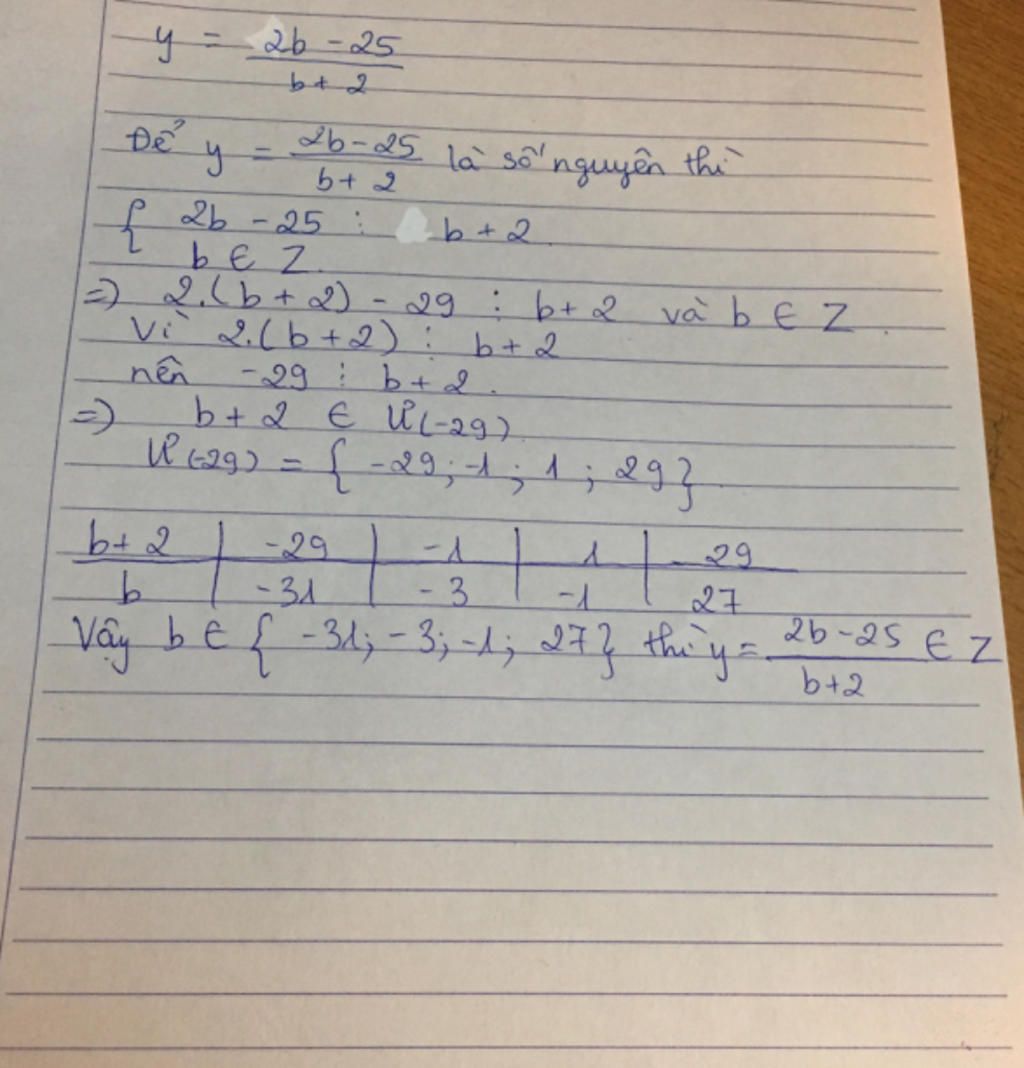 y = 2b - 25 / b + 2
Để y = 2b - 25 / b + 2 là số nguyên thì
{ 2b - 25 ⋮ b + 2
b ∈ Z.
=) 2.(b + 2) - 29 ⋮ b + 2 và b ∈ Z.
Vì 2.(b + 2) ⋮ b + 2
nên -29 ⋮ b + 2.
=) b + 2 ∈ Ư(-29)
Ư(-29) = { -29; -1; 1; 29}
b + 2 | -29 | -1 | 1 | 29
b | -31 | -3 | -1 | 27
Vậy b ∈ { -31; -3; -1; 27} thì y = 2b - 25 / b + 2 ∈ Z